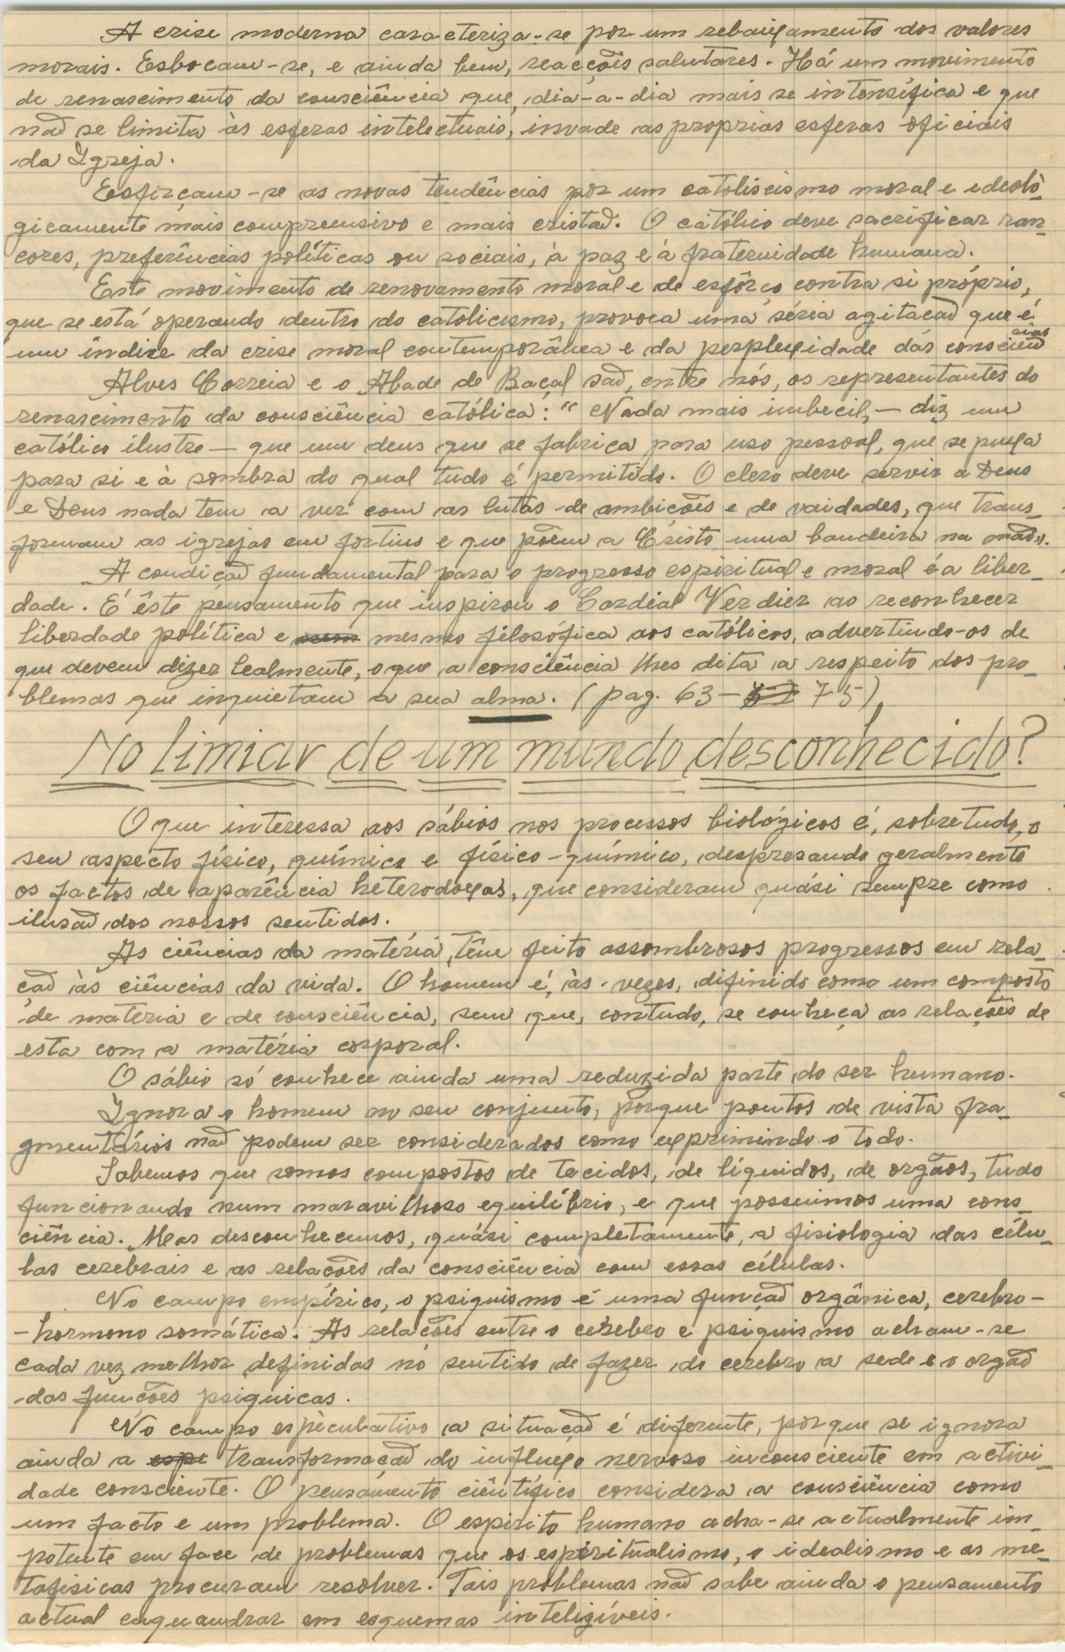 A crise moderna caracteriza-se por um rebaixamento dos valores
morais. Esboçam-se, e ainda bem, reacções salutares. Há um movimento
de renascimento da consciência que, dia-a-dia mais se intensifica e que
não se limita às esferas intelectuais, invade as proprias esferas oficiais
da Igreja.
Esforçam-se as novas tendências por um catoliscismo moral e ideoló-
gicamente mais compreensivo e mais cristão. O católico deve sacrificar ran-
cores, preferências políticas ou sociais, à paz e à fraternidade humana.
Este movimento de renovamento moral e de esfôrço contra si próprio,
que se está operando dentro do catolicismo, provoca uma séria agitação que é
um índice da crise moral contemporânea e da perplexidade das consciên
cias
Alves Correia e o Abade de Baçal são, entre nós, os representantes do
renascimento da consciência católica: "Nada mais imbecil, — diz um
católico ilustre — que um deus que se fabrica para uso pessoal, que se puxa
para si e à sombra do qual tudo é permitido. O clero deve servir a Deus
e Deus nada tem a ver com as lutas de ambições e de vaidades, que trans-
formam as igrejas em fortins e que põem a Cristo uma bandeira na mão".
A condição fundamental para o progresso espiritual e moral é a liber-
dade. É êste pensamento que inspirou o Cardial Verdier ao reconhecer
liberdade política e mesmo filosófica aos católicos, advertindo-os de
que devem dizer lealmente, o que a consciência lhes dita a respeito dos pro-
blemas que inquietam a sua alma. (pag. 63 — 75)
No limiar de um mundo desconhecido?
O que interessa aos sábios nos processos biológicos é, sobretudo, o
seu aspecto físico, químico e físico-químico, desprezando geralmente
os factos de aparência heterodoxas, que consideram quási sempre como
ilusão dos nossos sentidos.
As ciências da matéria, têm feito assombrosos progressos em rela-
ção às ciências da vida. O homem é, às-vezes, difinido como um composto
de matéria e de consciência, sem que, contudo, se conheça as relações de
esta com a matéria corporal.
O sábio só conhece ainda uma reduzida parte do ser humano.
Ignora o homem no seu conjunto, porque pontos de vista fra-
gmentários não podem ser considerados como exprimindo o todo.
Sabemos que somos compostos de tecidos, de líquidos, de orgãos, tudo
funcionando num maravilhoso equilíbrio, e que possuimos uma cons-
ciência. Mas desconhecemos, quási completamente, a fisiologia das célu-
las cerebrais e as relações da consciência com essas células.
No campo empírico, o psiquismo é uma função orgânica, cerebro-
-hormono somática. As relações entre o cérebro e psiquismo acham-se
cada vez melhor definidas no sentido de fazer do cerebro a sede e o orgão
das funções psiquicas.
No campo especulativo a situação é diferente, porque se ignora
ainda a transformação do influxo nervoso inconsciente em activi-
dade consciente. O pensamento científico considera a consciência como
um facto e um problema. O espírito humano acha-se actualmente im-
potente em face de problemas que os espiritualismo, o idealismo e as me-
tafísicas procuram resolver. Tais problemas não sabe ainda o pensamento
actual enquandrar em esquemas inteligíveis.